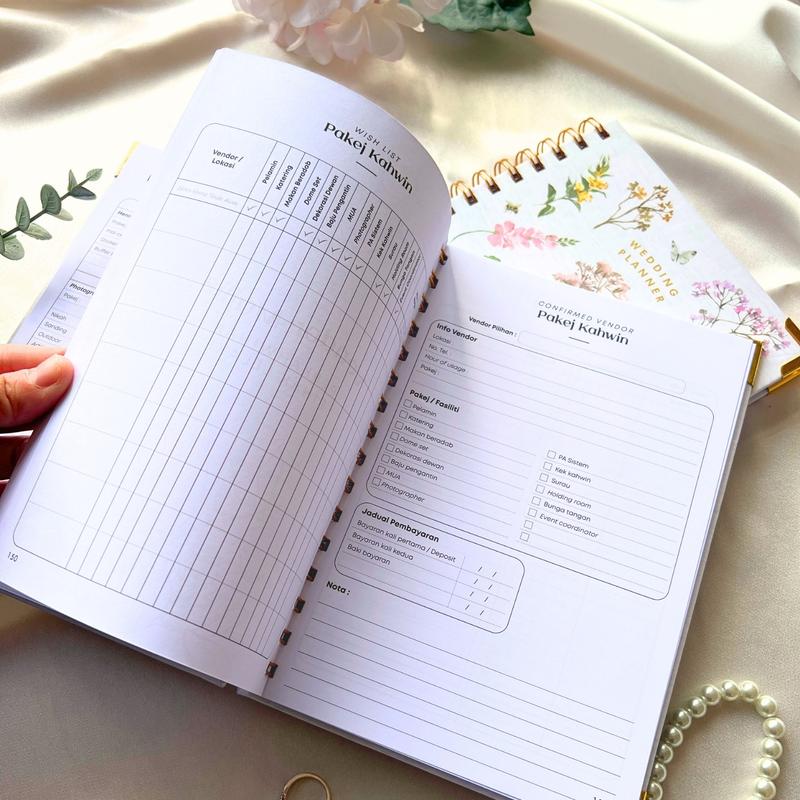 WISH LIST
Pakej Kahwin
Vendor /
Lokasi
Pelamin
Katering
Makan Beradab
Dome Set
Dekorasi Dewan
Baju Pengantin
MUA
Photographer
PA Sistem
Kek Kahwin
Surau
Holding Room
Bunga Tangan
130
Photogr
Pakej
Nikah
Sanding
Outdoor
WEDDING
PLANNER
CONFIRMED VENDOR
Pakej Kahwin
Vendor Pilihan :
Info Vendor
Lokasi
No. Tel
Hour of usage
Pakej :
Pakej / Fasiliti
Pelamin
Katering
Makan beradab
Dome set
Dekorasi dewan
Baju pengantin
MUA
Photographer
PA Sistem
Kek kahwin
Surau
Holding room
Bunga tangan
Event coordinator
Jadual Pembayaran
Bayaran kali pertama / Deposit
Bayaran kali kedua
Baki bayaran
/ /
/ /
/ /
/ /
Nota :